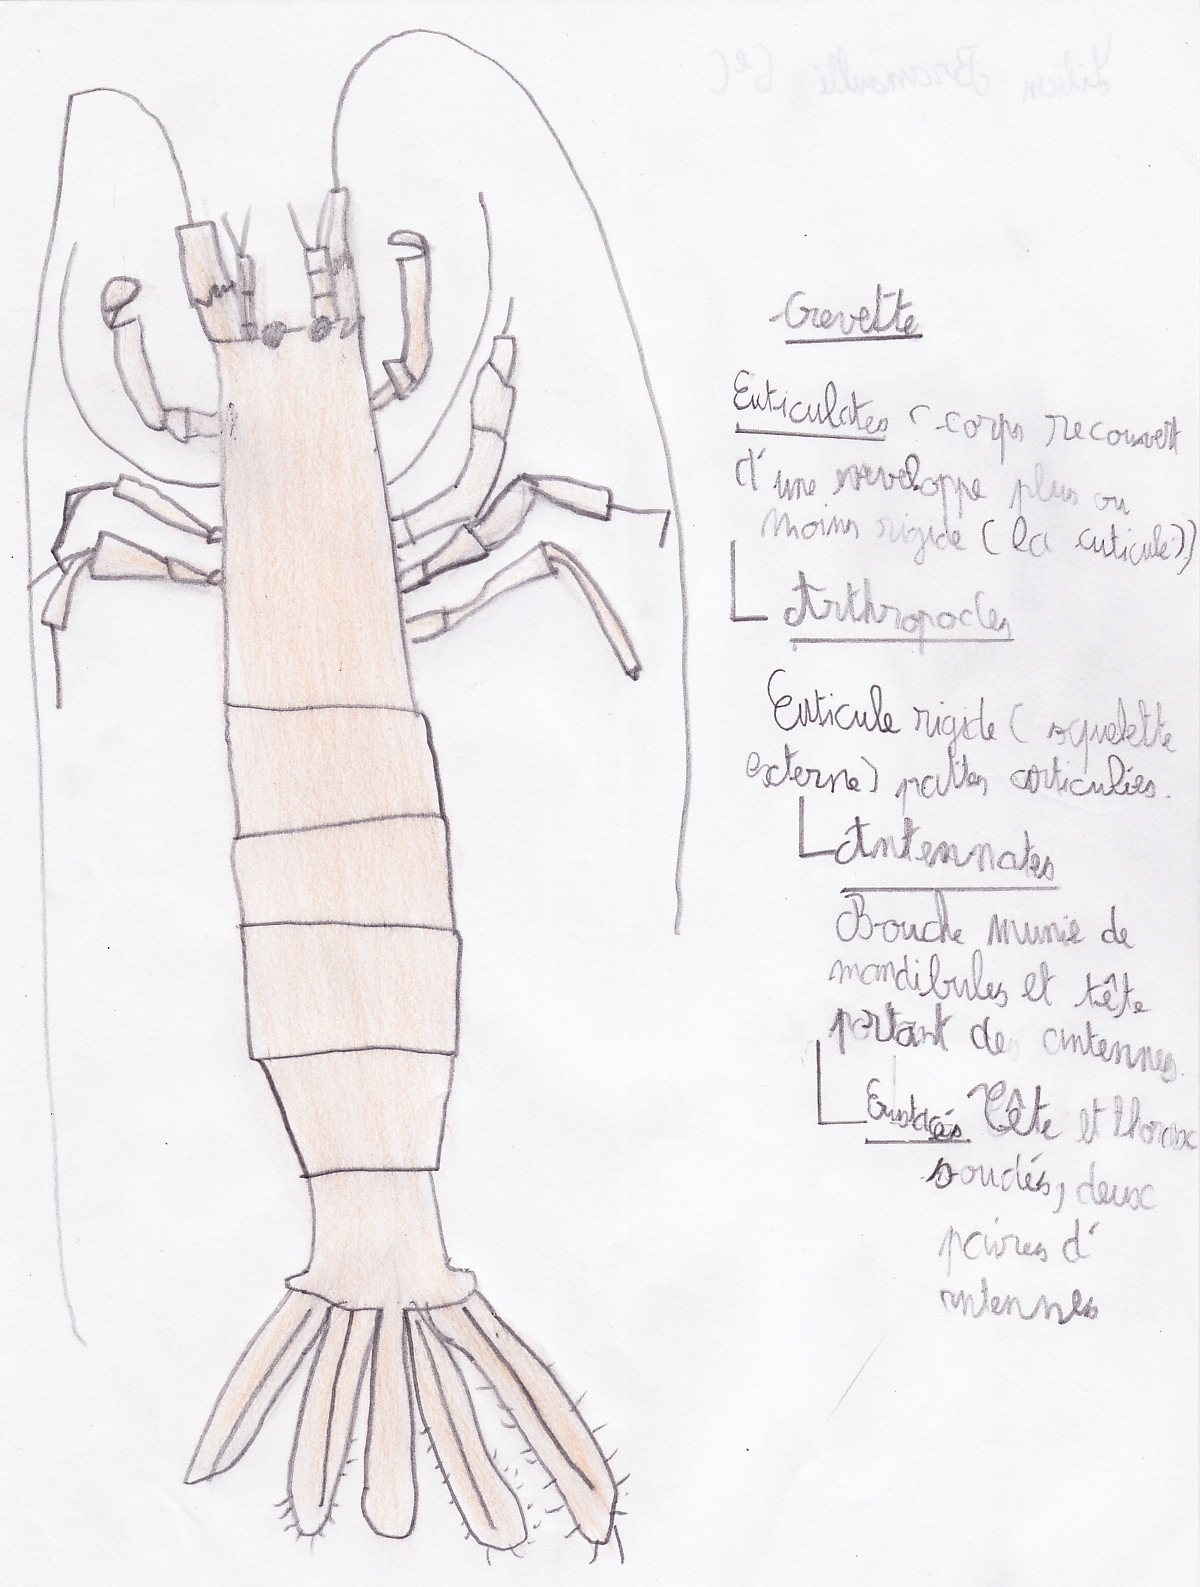 Crevette
Cuticulates (corps recouvert
d'une enveloppe plus ou
moins rigide (la cuticule))
Arthropodes
Cuticule rigide (squelette
externe) pattes articulées.
Antennates
Bouche munie de
mandibules et tête
portant des antennes.
Crustacés Tête et thorax
soudés, deux
paires d'
antennes